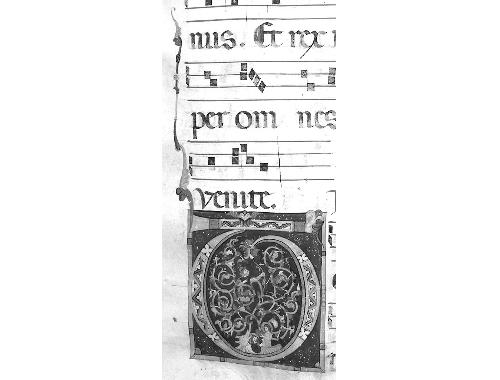 nus. Et rex
per om nes
venite.
O